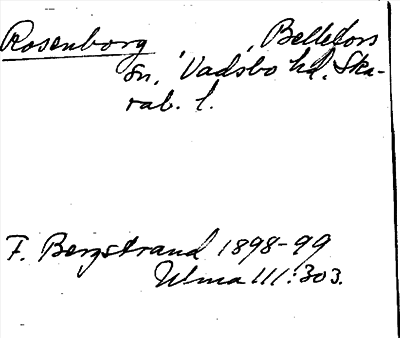 Rosenborg , , Bellefors
sn, Vadsbo hd. Ska-
rab. l.
F. Bergstrand 1898-99
Ulma 111:303.